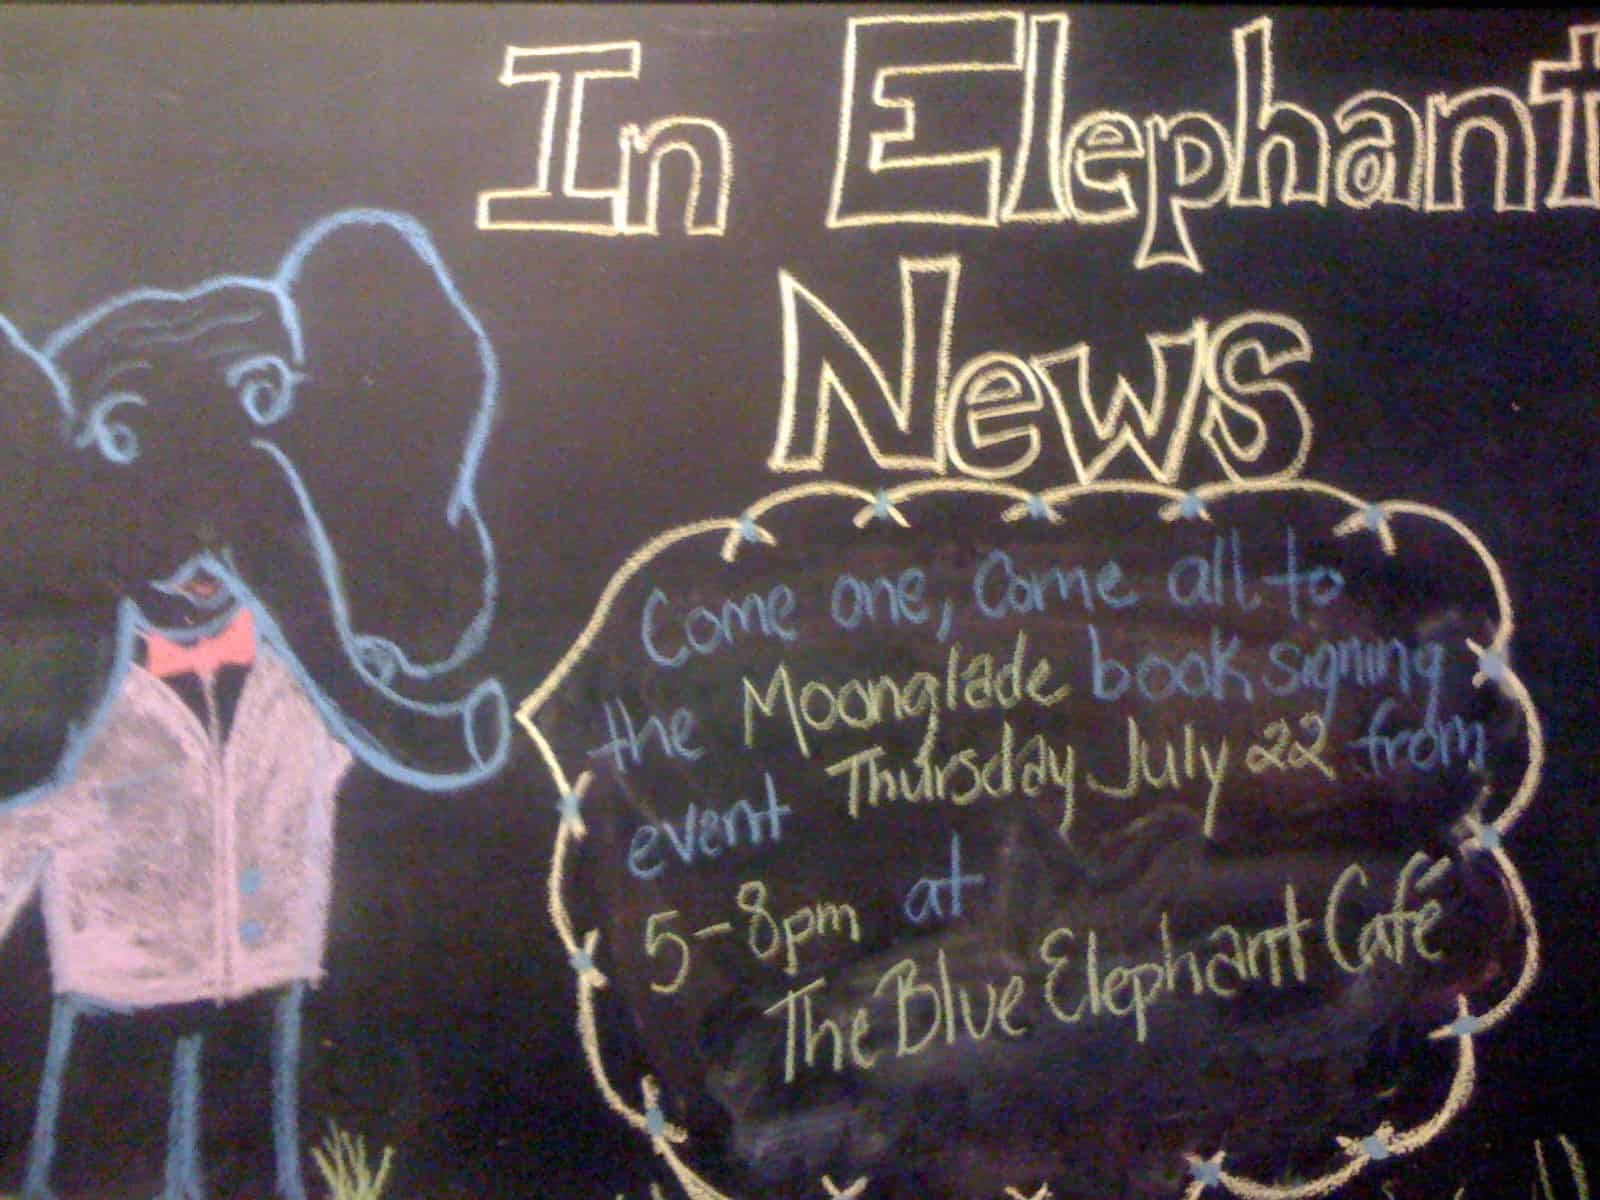 In Elephant
News
Come one, Come all to
the Moonglade book signing
event Thursday July 22 from
5-8pm at
The Blue Elephant Café